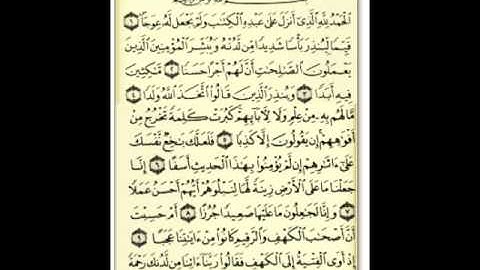 ٱلْحَمْدُ لِلَّهِ ٱلَّذِىٓ أَنزَلَ عَلَىٰ عَبْدِهِ ٱلْكِتَٰبَ وَلَمْ يَجْعَل لَّهُۥ عِوَجَا ۜ ١
قَيِّمًا لِّيُنذِرَ بَأْسًا شَدِيدًا مِّن لَّدُنْهُ وَيُبَشِّرَ ٱلْمُؤْمِنِينَ ٱلَّذِينَ
يَعْمَلُونَ ٱلصَّٰلِحَٰتِ أَنَّ لَهُمْ أَجْرًا حَسَنًا ٢ مَّٰكِثِينَ
فِيهِ أَبَدًا ٣ وَيُنذِرَ ٱلَّذِينَ قَالُوا۟ ٱتَّخَذَ ٱللَّهُ وَلَدًا ٤
مَّا لَهُم بِهِۦ مِنْ عِلْمٍ وَلَا لِـَٔابَآئِهِمْ ۚ كَبُرَتْ كَلِمَةً تَخْرُجُ مِنْ
أَفْوَٰهِهِمْ ۚ إِن يَقُولُونَ إِلَّا كَذِبًا ٥ فَلَعَلَّكَ بَٰخِعٌ نَّفْسَكَ
عَلَىٰٓ ءَاثَٰرِهِمْ إِن لَّمْ يُؤْمِنُوا۟ بِهَٰذَا ٱلْحَدِيثِ أَسَفًا ٦ إِنَّا
جَعَلْنَا مَا عَلَى ٱلْأَرْضِ زِينَةً لَّهَا لِنَبْلُوَهُمْ أَيُّهُمْ أَحْسَنُ عَمَلًا
٧ وَإِنَّا لَجَٰعِلُونَ مَا عَلَيْهَا صَعِيدًا جُرُزًا ٨ أَمْ حَسِبْتَ
أَنَّ أَصْحَٰبَ ٱلْكَهْفِ وَٱلرَّقِيمِ كَانُوا۟ مِنْ ءَايَٰتِنَا عَجَبًا ٩
إِذْ أَوَى ٱلْفِتْيَةُ إِلَى ٱلْكَهْفِ فَقَالُوا۟ رَبَّنَآ ءَاتِنَا مِن لَّدُنكَ رَحْمَةً